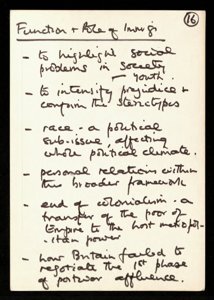 16
Function + Role of Immig:
- to highlight social
problems in society
- youth.
- to intensify prejudice +
confirm the stereotypes
- race - a political
sub-issue, affecting
whole political climate.
- personal relations within
this broader framework
- end of colonialism - a
transfer of the poor of
Empire to the host metropol-
itan power
- how Britain failed to
negotiate the 1st phase
of postwar affluence.